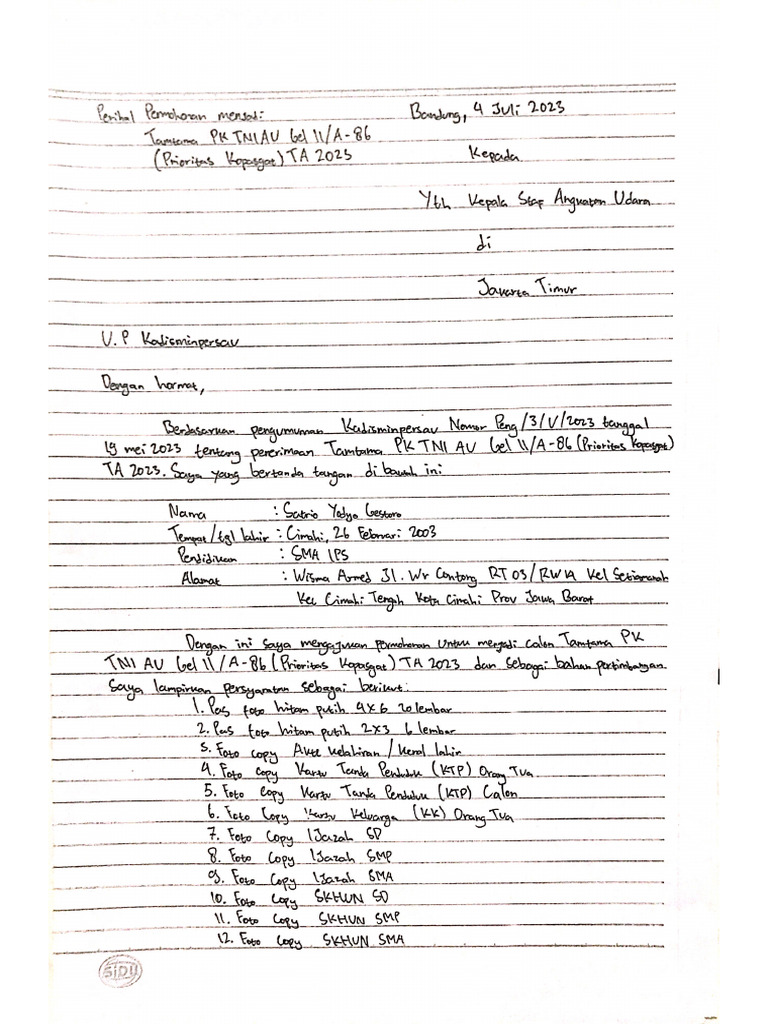 Perihal Permohonan menjadi:
Bandung, 4 Juli 2023
Tamtama PK TNI AU Gel II/A-86
(Prioritas Kopasgat) TA 2023
Kepada
Yth Kepala Staf Angkatan Udara
di
Jakarta Timur
U.P Kadisminpersau
Dengan hormat,
Berdasarkan pengumuman Kadisminpersau Nomor Peng/3/V/2023 tanggal
19 mei 2023 tentang penerimaan Tamtama PK TNI AU Gel II/A-86 (Prioritas Kopasgat)
TA 2023. Saya yang bertanda tangan di bawah ini
Nama : Satrio Yadya Gestoro
Tempat/tgl lahir : Cimahi, 26 Februari 2003
Pendidikan : SMA IPS
Alamat : Wisma Armed Jl. Wr Contong RT 03/RW 14 Kel Setiamanah
Kec Cimahi Tengah Kota Cimahi Prov Jawa Barat
Dengan ini saya mengajukan permohonan untuk menjadi calon Tamtama PK
TNI AU Gel II/A-86 (Prioritas Kopasgat) TA 2023 dan sebagai bahan pertimbangan.
Saya lampirkan persyaratan sebagai berikut:
1. Pas foto hitam putih 4x6 20 lembar
2. Pas foto hitam putih 2x3 6 lembar
3. Foto copy Akte kelahiran / kenal lahir
4. Foto copy Kartu Tanda Penduduk (KTP) Orang Tua
5. Foto copy Kartu Tanda Penduduk (KTP) Calon
6. Foto Copy Kartu Keluarga (KK) Orang Tua
7. Foto Copy Ijazah SD
8. Foto Copy Ijazah SMP
9. Foto Copy Ijazah SMA
10. Foto Copy SKHUN SD
11. Foto Copy SKHUN SMP
12. Foto Copy SKHUN SMA
SIDU